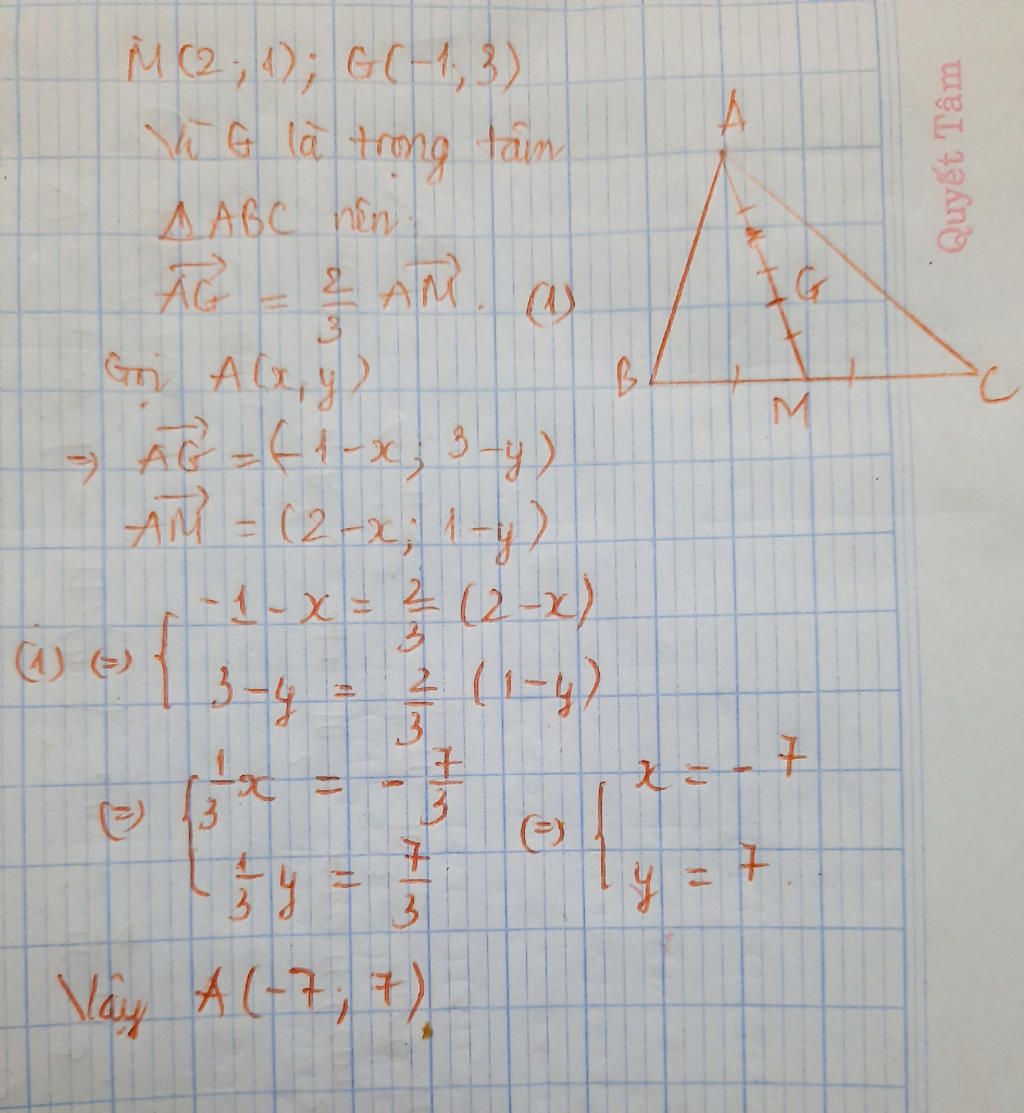 M(2; 1); G(-1; 3)
Vì G là trọng tâm
△ABC nên
$\overrightarrow{AG} = \frac{2}{3} \overrightarrow{AM}$. (1)
Gọi A(x, y)
⇒ $\overrightarrow{AG}$ = (-1-x; 3-y)
$\overrightarrow{AM}$ = (2-x; 1-y)
(1) (=) { -1-x = $\frac{2}{3}$ (2-x)
3-y = $\frac{2}{3}$ (1-y)
(=) { $\frac{1}{3}$x = -$\frac{7}{3}$ (=) { x = -7
$\frac{1}{3}$y = $\frac{7}{3}$ y = 7.
Vậy A(-7; 7)
A
G
B
M
C
Quyết Tâm